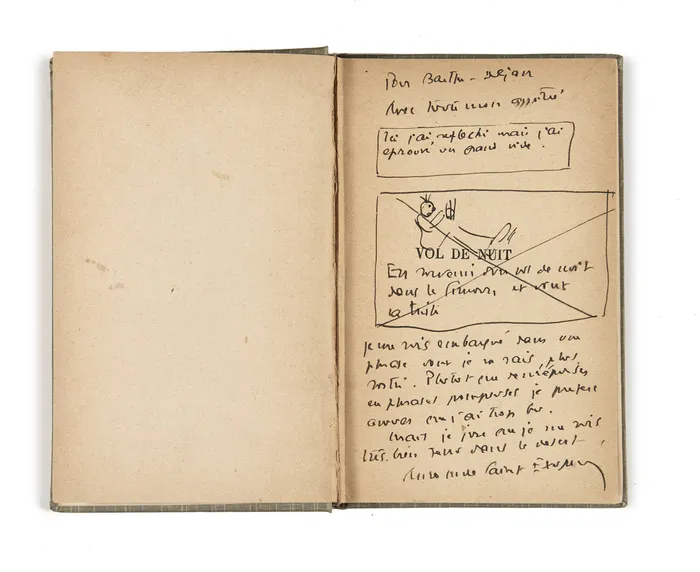 Pour Barthe-Dejean
Avec toute mon amitié
Ici j'ai réfléchi mais j'ai
éprouvé un grand vide.
VOL DE NUIT
En souvenir d'un vol de nuit
dans le Simoun, et tout
Je me suis embarqué dans une
phrase dont je ne sais plus
sortir. Plutôt que
en phrases pompeuses je préfère
avouer que j'ai trop bu.
Mais je jure que je me suis
très bien tenu dans le désert.
Antoine de Saint Exupéry